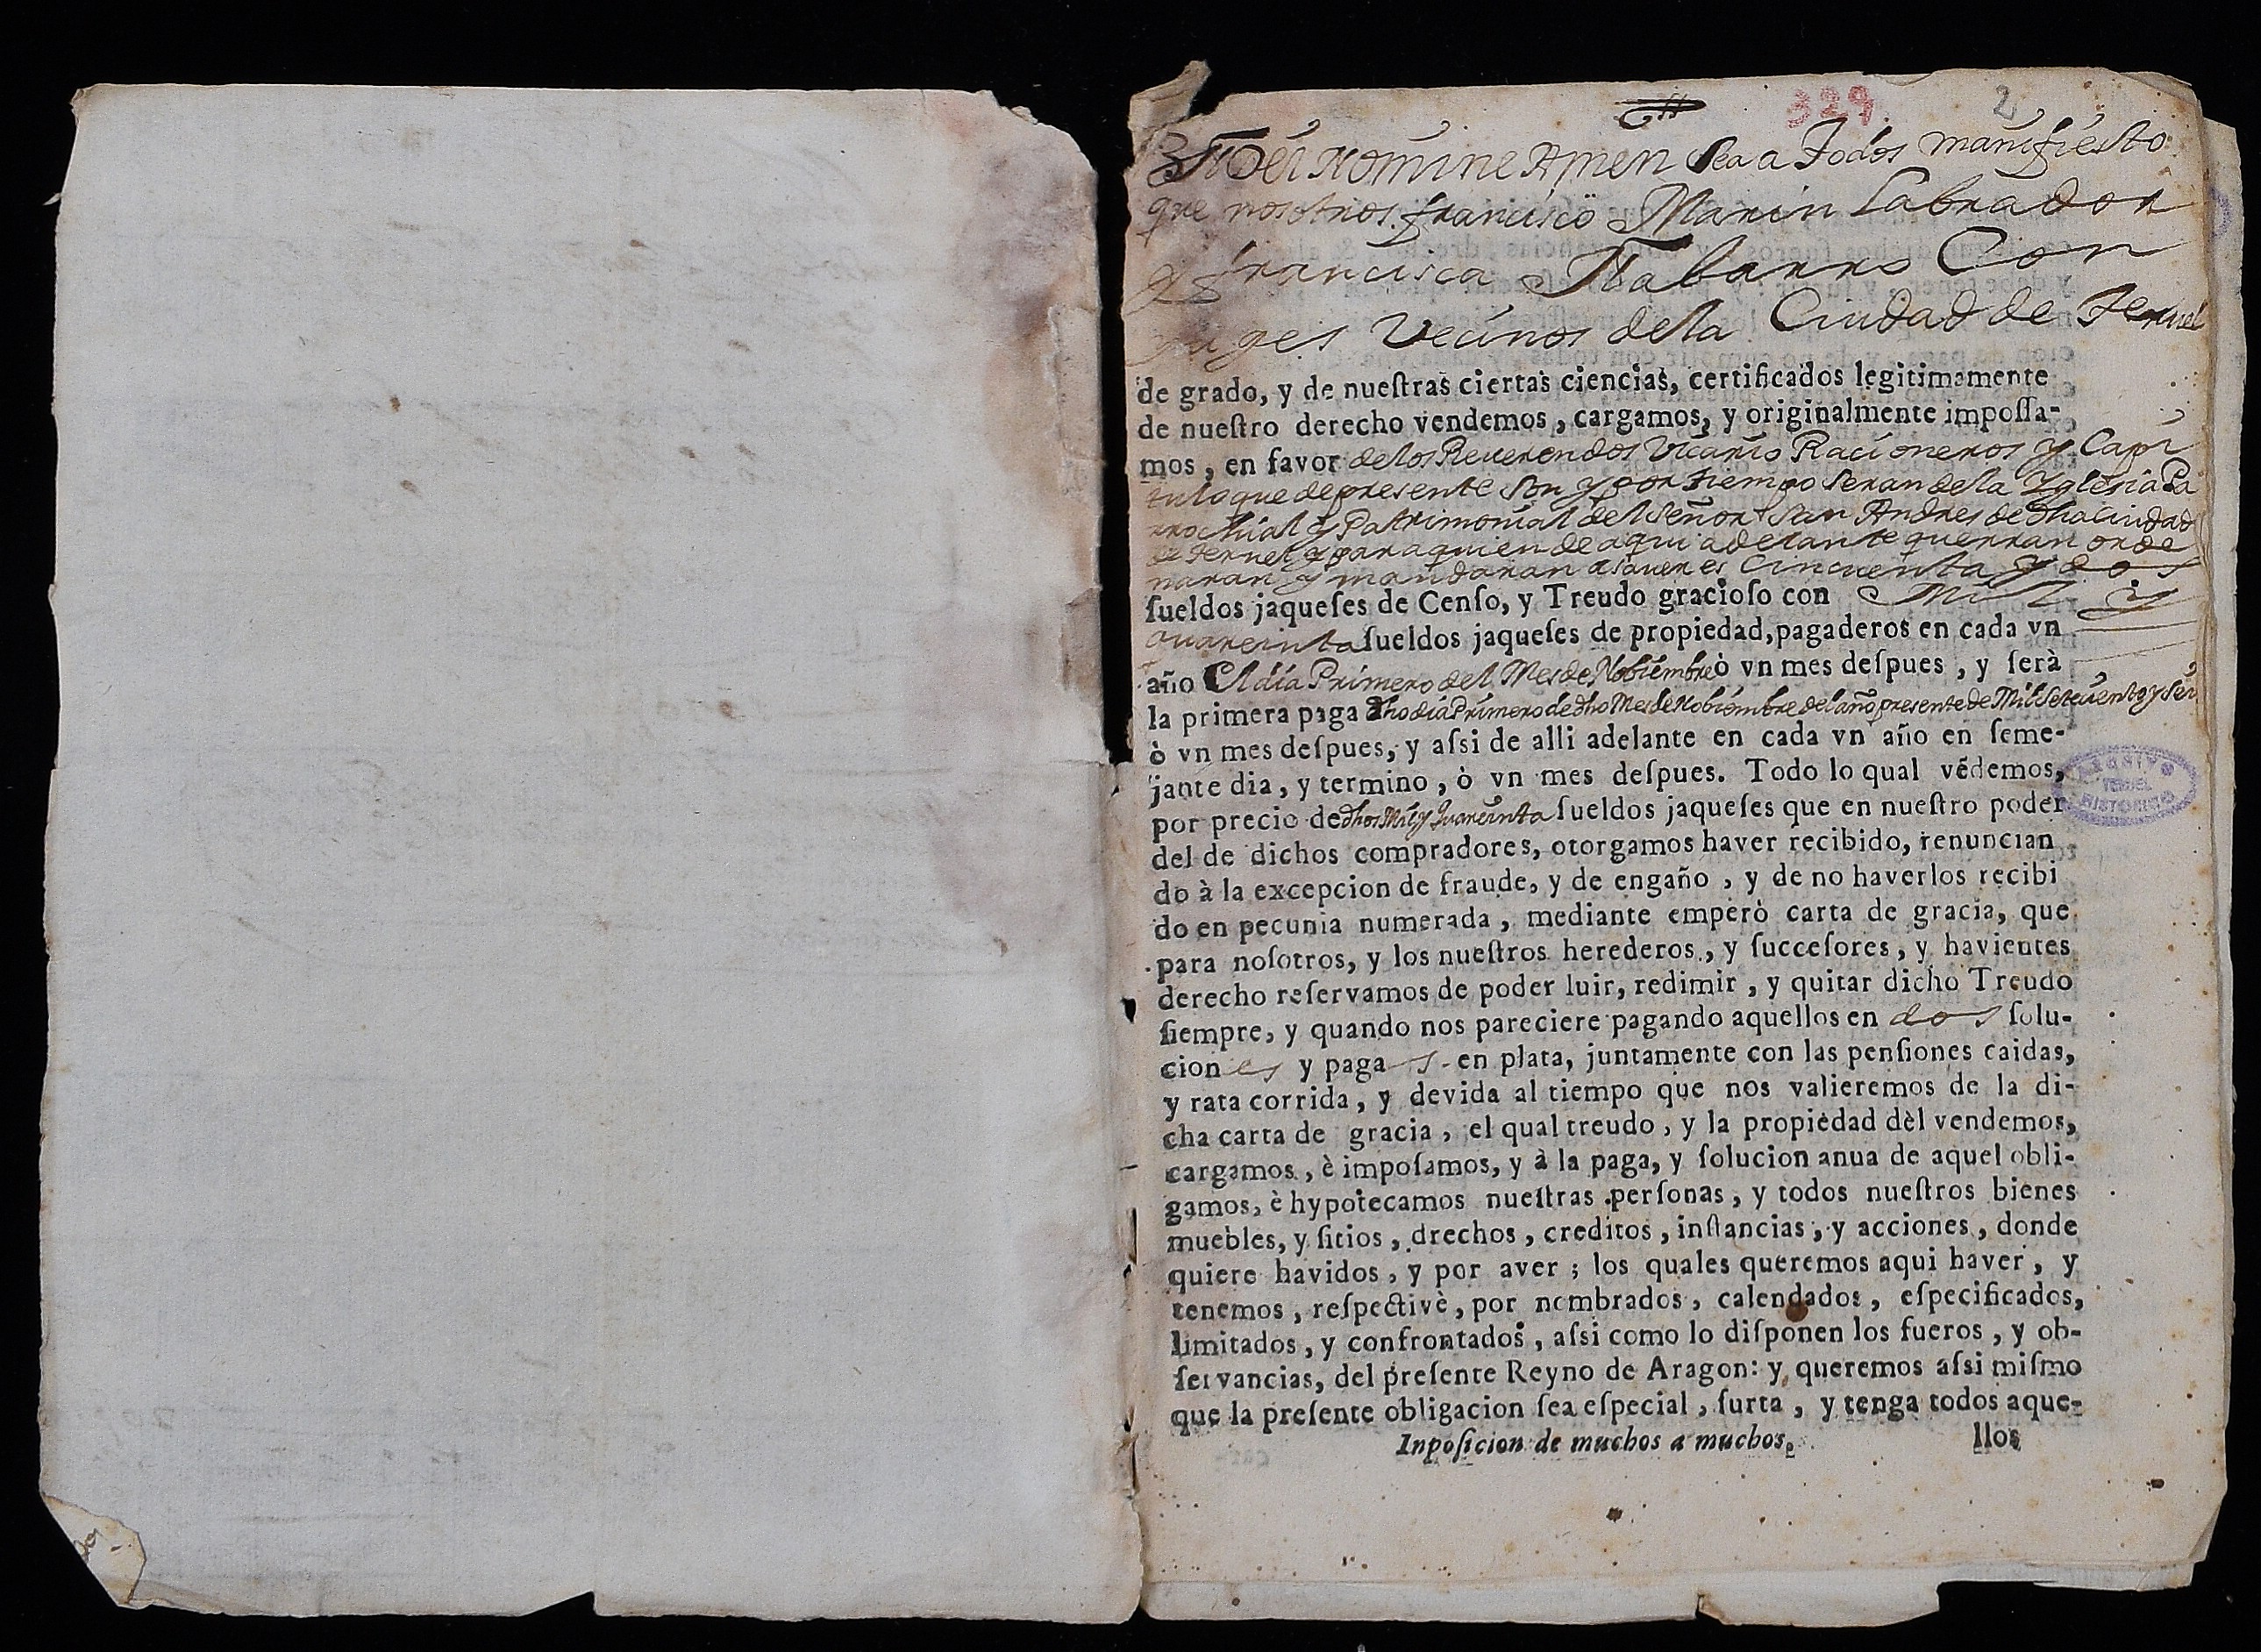 329 2
En Dei Nomine Amen Sea a Todos manifiesto
que nosotros francisco Marin Labrador
y francisca Nabarro Con
juges Vecinos dela Ciudad de Teruel
de grado, y de nueſtras ciertas ciencias, certificados legitimamente
de nueſtro derecho vendemos, cargamos, y originalmente impoſſa-
mos, en favor delos Reuerendos Vicario Racioneros y Capi
tulo que depresente son y por tiempo seran dela Yglesia Pa
rrochial y Patrimonial del Señor San Andres de dha ciudad
de Teruel y para quien de aqui adelante querran orde
naran y mandaran asauer es Cincuenta y dos
ſueldos jaqueſes de Cenſo, y Treudo gracioſo con Mil y
quareinta ſueldos jaqueſes de propiedad, pagaderos en cada vn
año El dia Primero del Mes de Nobiembre ò vn mes deſpues, y ſerà
la primera paga dho dia Primero de dho Mes de Nobiembre del año presente de Mil Setecientos y Seis
ò vn mes deſpues, y aſsi de alli adelante en cada vn año en ſeme-
jante dia, y termino, ò vn mes deſpues. Todo lo qual vẽdemos,
por precio de dhos Mil y Quareinta ſueldos jaqueſes que en nueſtro poder
del de dichos compradores, otorgamos haver recibido, renuncian
do à la excepcion de fraude, y de engaño, y de no haverlos recibi
do en pecunia numerada, mediante emperò carta de gracia, que
para noſotros, y los nueſtros herederos, y ſucceſores, y havientes
derecho reſervamos de poder luir, redimir, y quitar dicho Treudo
ſiempre, y quando nos pareciere pagando aquellos en dos ſolu-
ciones y pagas en plata, juntamente con las penſiones caidas,
y rata corrida, y devida al tiempo que nos valieremos de la di-
cha carta de gracia, el qual treudo, y la propiedad dèl vendemos,
cargamos, è impoſamos, y à la paga, y ſolucion anua de aquel obli-
gamos, è hypotecamos nueſtras perſonas, y todos nueſtros bienes
muebles, y ſitios, drechos, creditos, inſtancias, y acciones, donde
quiere havidos, y por aver; los quales queremos aqui haver, y
tenemos, reſpectivè, por nombrados, calendados, eſpecificados,
limitados, y confrontados, aſsi como lo diſponen los fueros, y ob-
ſervancias, del preſente Reyno de Aragon: y queremos aſsi miſmo
que la preſente obligacion ſea eſpecial, ſurta, y tenga todos aque-
Inpoſicion de muchos a muchos. llos
ARCHIVO
TERUEL
HISTORICO